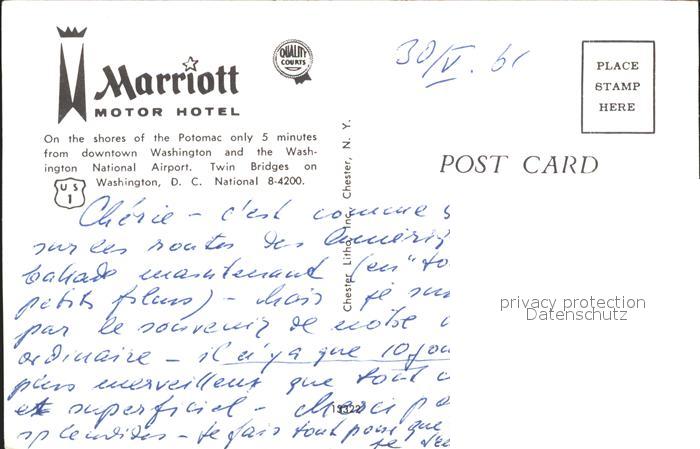 Marriott
MOTOR HOTEL
QUALITY
COURTS
On the shores of the Potomac only 5 minutes
from downtown Washington and the Wash-
ington National Airport. Twin Bridges on
US
1
Washington, D. C. National 8-4200.
30/V. 61
PLACE
STAMP
HERE
POST CARD
Chester Litho, Inc., Chester, N. Y.
Chérie - c'est comme
sur les routes des
maintenant (en "
petits films) - Mais je
par le souvenir de notre
ordinaire - il n'y a que 10
plus merveilleux que tout
et superficiel - Merci
splendides - Je fais tout pour que
je
15322
privacy protection
Datenschutz